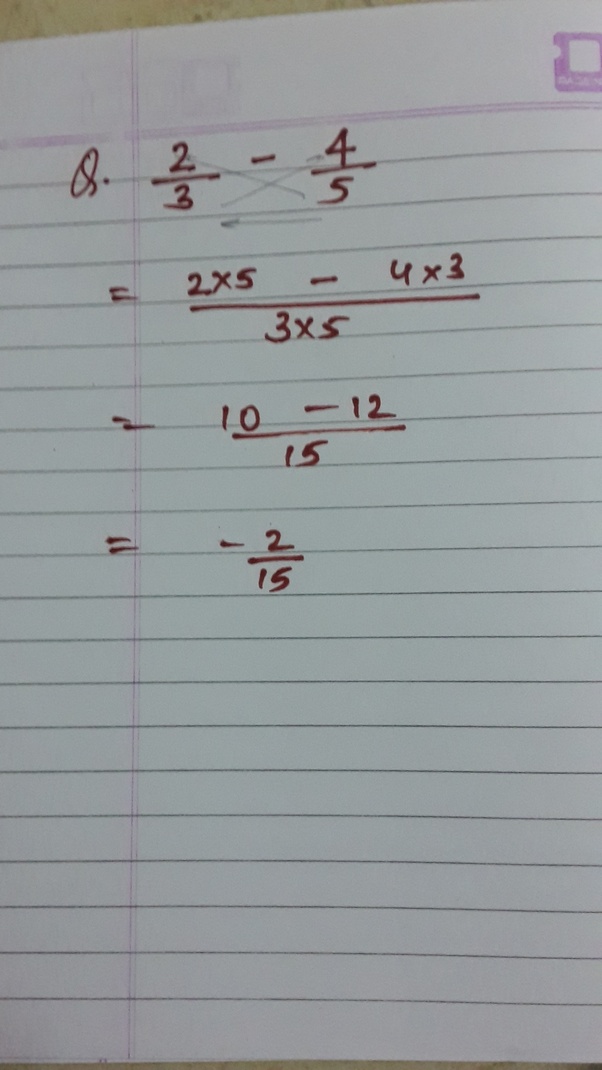 Q. 2/3 - 4/5
= (2×5 - 4×3)/(3×5)
= (10 - 12)/15
= -2/15